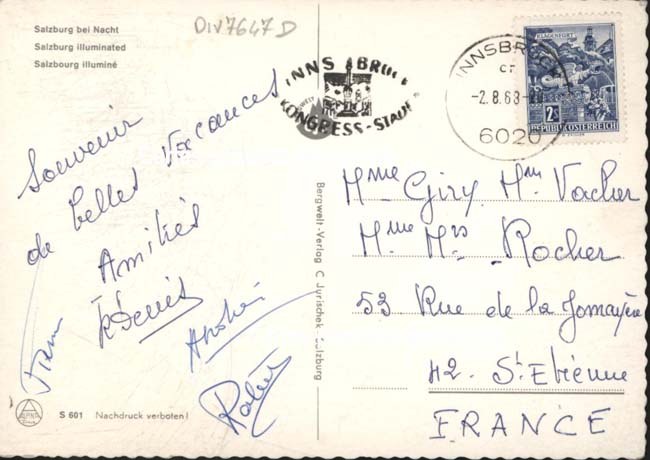 Salzburg bei Nacht
Salzburg illuminated
Salzbourg illuminé
DIV7647D
Souvenir
de belles vacances
Amitiés
Denis
Robert
S 601 Nachdruck verboten!
Bergwelt-Verlag C Jurischek, Salzburg
INNSBRUCK
KONGRESS-STADT
INNSBRUCK
-2.8.68-
6020
KLAGENFURT
2S
REPUBLIK ÖSTERREICH
Mme Giry Mm Vacher
Mme Mrs Rocher
53 Rue de la
42 St Etienne
FRANCE